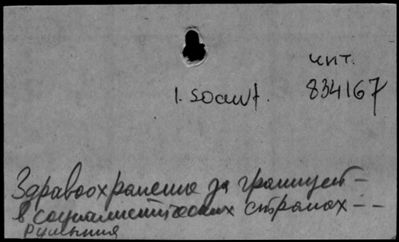 чит.
1. 834167
Здравоохранение за границей –
в социалистических странах – –
Румыния